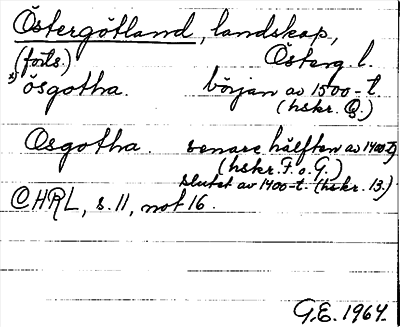 Östergötland, landskap,
(forts.) Österg. l.
s) ösgotha. början av 1500-t.
(hskr. Q.)
Osgotha. senare hälften av 1400-t.
(hskr. F. o. G.)
slutet av 1400-t. (hskr. 13.)
© HRL, s. 11, not 16.
G.E. 1964.